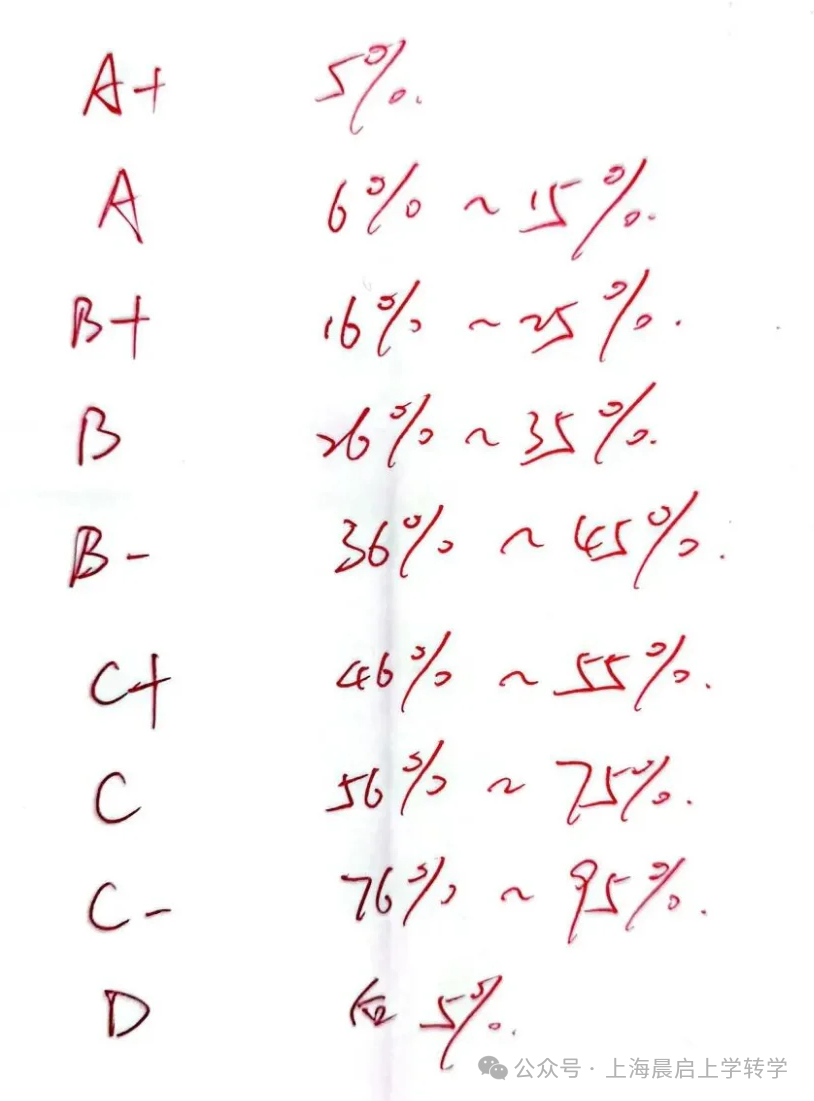 A+ 5%.
A 6% ~ 15%.
B+ 16% ~ 25%.
B 26% ~ 35%.
B- 36% ~ 45%.
C+ 46% ~ 55%.
C 56% ~ 75%.
C- 76% ~ 95%.
D 5%.
公众号 · 上海晨启上学转学